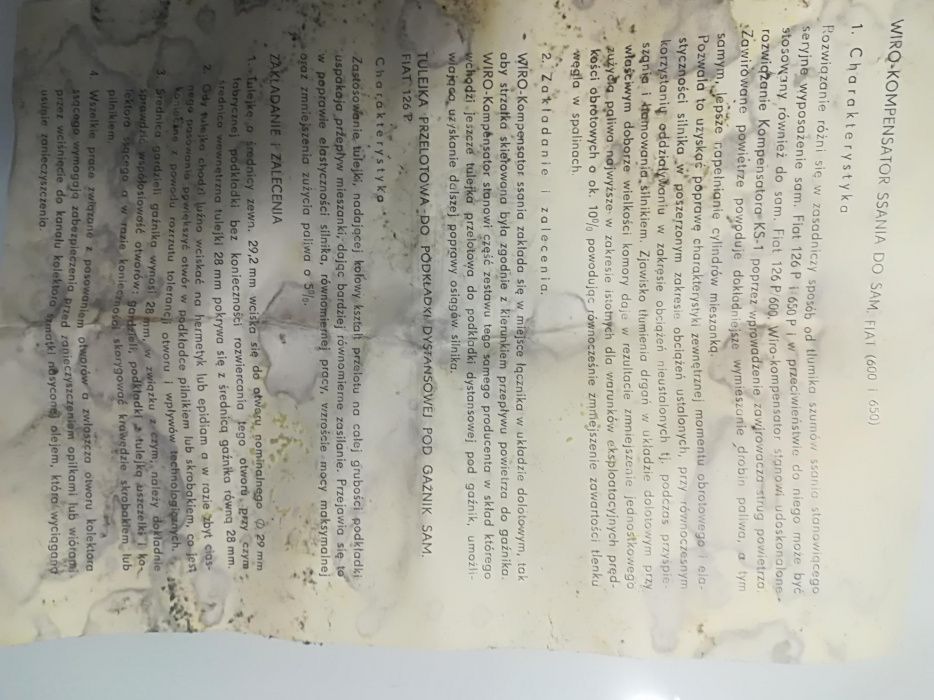 WIRO-KOMPENSATOR SSANIA DO SAM. FIAT (600 i 650)
1. Charakterystyka
Rozwiązanie różni się w zasadniczy sposób od tłumika szumów ssania stanowiącego
seryjne wyposażenie sam. Fiat 126 P i 650 P i w przeciwieństwie do niego może być
stosowany również do sam. Fiat 126 P/600. Wiro-kompensator stanowi udoskonalone
rozwiązanie Kompensatora KS-1 poprzez wprowadzenie zawirowacza strug powietrza.
Zawirowane powietrze powoduje dokładniejsze wymieszanie drobin paliwa, a tym
samym, lepsze napełnianie cylindrów mieszanką.
Pozwala to uzyskać poprawę charakterystyki zewnętrznej momentu obrotowego i ela-
styczności silnika w poszerzonym zakresie obciążeń ustalonych, przy równoczesnym
korzystaniu oddziaływaniu w zakresie obciążeń nieustalonych tj. podczas przyspie-
szania i hamowania silnikiem. Zjawisko tłumienia drgań w układzie dolotowym przy
właściwym doborze wielkości komory daje w rezultacie zmniejszenie jednostkowego
zużycia paliwa najwyższe w zakresie istotnych dla warunków eksploatacyjnych pręd-
kości obrotowych a ok. 10% powodując równocześnie zmniejszenie zawartości tlenku
węgla w spalinach.
2. Zakładanie i zalecenia.
• WIRO-Kompensator ssania zakłada się w miejsce łącznika w układzie dolotowym, tak
aby strzałka skierowana była zgodnie z kierunkiem przepływu powietrza do gaźnika.
• WIRO-Kompensator stanowi część zestawu tego samego producenta w skład którego
wchodzi jeszcze tulejka przelotowa do podkładki dystansowej pod gaźnik, umożli-
wiająca uzyskanie dalszej poprawy osiągów silnika.
TULEJKA PRZELOTOWA DO PODKŁADKI DYSTANSOWEJ POD GAŹNIK SAM.
FIAT 126 P
Charakterystyka
Zastosowanie tulejki, nadającej kołowy kształt przelotu na całej grubości podkładki
uspakaja przepływ mieszanki, dając bardziej równomierne zasilanie. Przejawia się to
w poprawie elastyczności silnika, równomiernej pracy, wzroście mocy maksymalnej
oraz zmniejszenia zużycia paliwa o 5%.
ZAKŁADANIE I ZALECENIA
1. Tulejkę o średnicy zewn. 29,2 mm wciska się do otworu nominalnego ∅ 29 mm
fabrycznej podkładki bez konieczności rozwiercania tego otworu przy czym
średnica wewnętrzna tulejki 28 mm pokrywa się z średnicą gaźnika równą 28 mm.
2. Gdy tulejka chodzi luźno wciskać na hermetyk lub epidiam a w razie zbyt cias-
nego pasowania powiększyć otwór w podkładce pilnikiem lub skrobakiem, co jest
konieczne z powodu rozrzutu tolerancji otworu i wpływów technologicznych.
3. Średnica gardzieli gaźnika wynosi 28 mm, w związku z czym, należy dokładnie
sprawdzić współosiowość otworów: gardzieli, podkładki z tulejką uszczelki i ko-
lektora ssącego a w razie konieczności skorygować krawędzie skrobakiem lub
pilnikiem.
4. Wszelkie prace związane z pasowaniem otworów a zwłaszcza otworu kolektora
ssącego wymagają zabezpieczenia przed zanieczyszczeniem opiłkami lub wiórami
przez wciśnięcie do kanału kolektora szmatki nasyconej olejem, która wyciągana
usunie zanieczyszczenia.